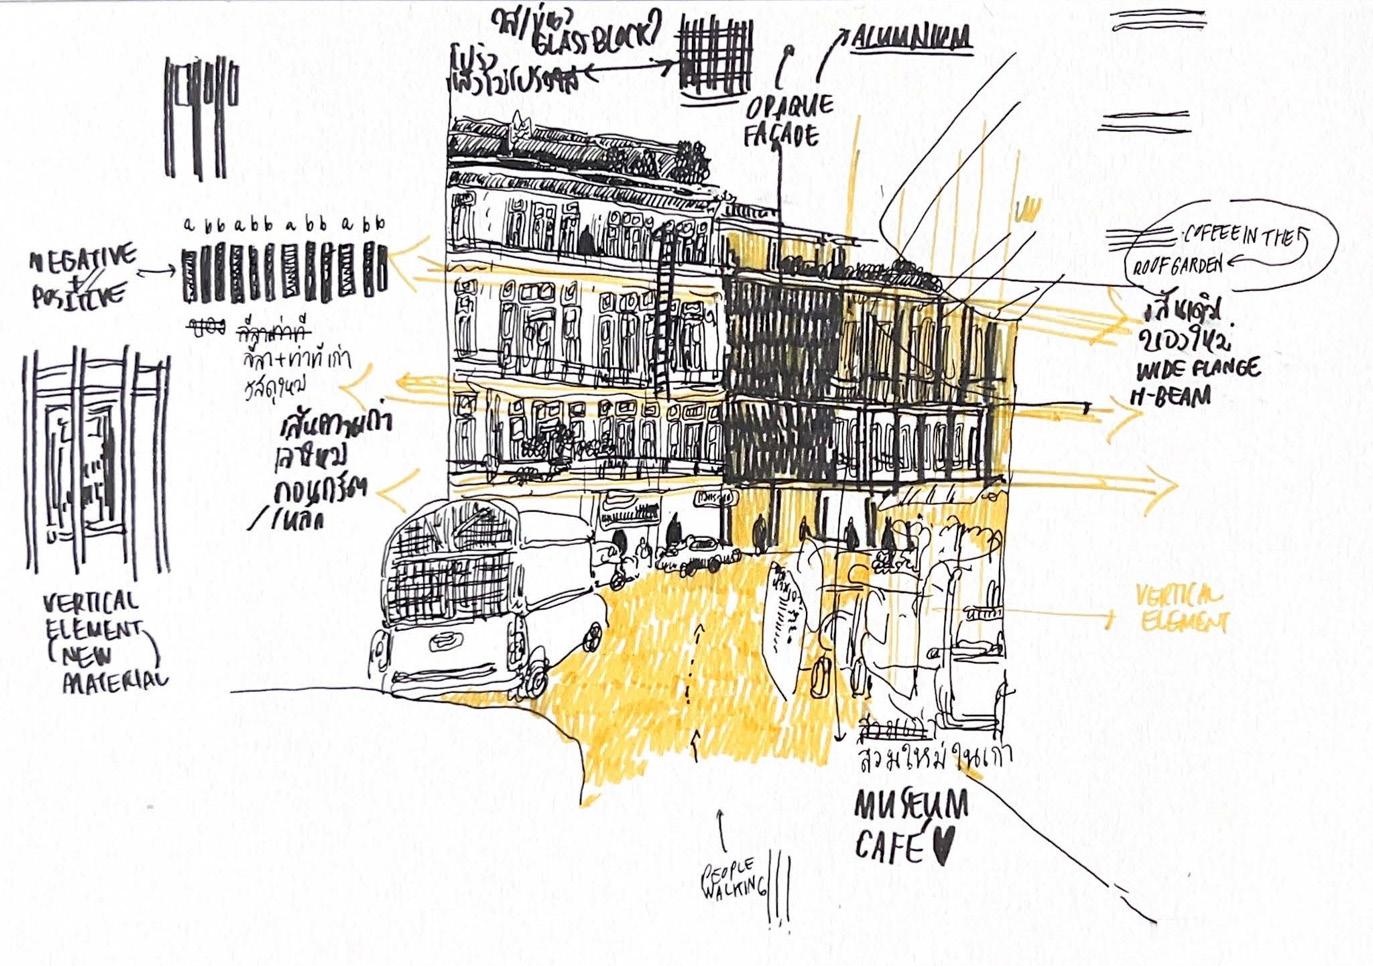 ใส/ขุ่น?
GLASS BLOCK?
โปร่ง
แต่ไม่โปร่งใส
ALUMNIUM
OPAQUE
FAÇADE
a b b a b b a b b a b b
NEGATIVE
+
POSITIVE
ลีลาท่าที
ลีลา+ท่าทีเก่า
วัสดุใหม่
เส้นความเก่า
เล่าใหม่
คอนกรีต
/เหล็ก
COFFEE IN THE
ROOF GARDEN
เส้นเดิม
ของใหม่
WIDE FLANGE
H-BEAM
VERTICAL
ELEMENT
(NEW
MATERIAL)
VERTICAL
ELEMENT
สวมใหม่ในเก่า
MUSEUM
CAFE
PEOPLE
WALKING